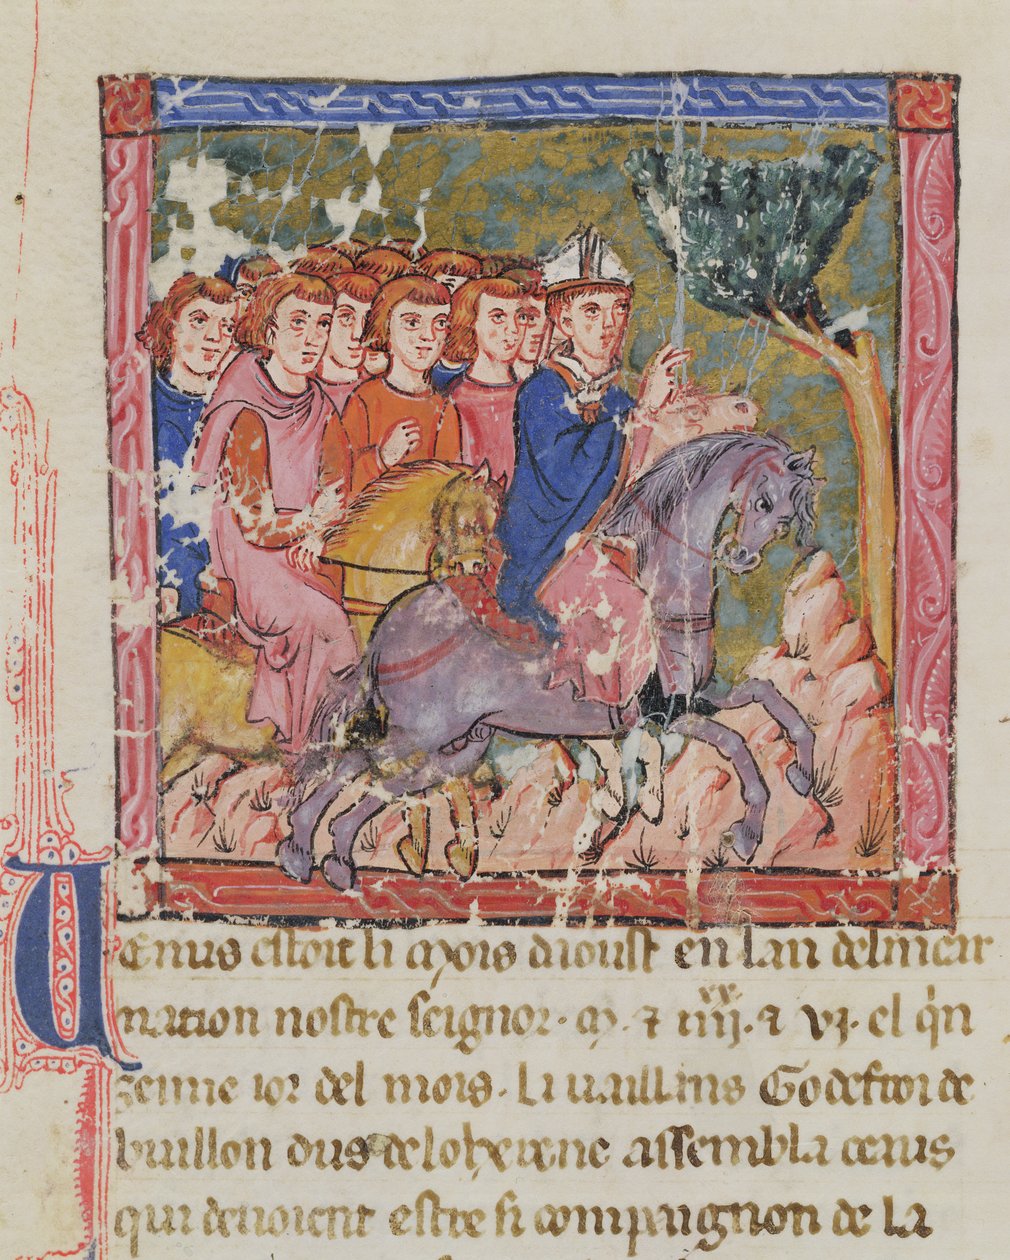 Venus estoit li mois daoust en lan delincar
nation nostre seignor · m · ⁊ iiij · xx ⁊ vj · el q̍n
zeime ior del mois · Li uaillans Godefroi de
buillon dus de loherene assembla ceaus
qui deuoient estre si compaignon de la